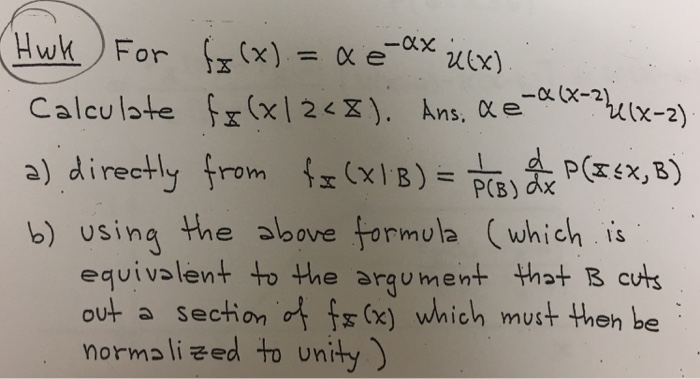 Hwk For f_X(x) = α e^{-αx} u(x)
Calculate f_X(x|2<X). Ans. α e^{-α(x-2)} u(x-2)
a) directly from f_X(x|B) = \frac{1}{P(B)} \frac{d}{dx} P(X≤x, B)
b) using the above formula (which is
equivalent to the argument that B cuts
out a section of f_X(x) which must then be
normalized to unity)